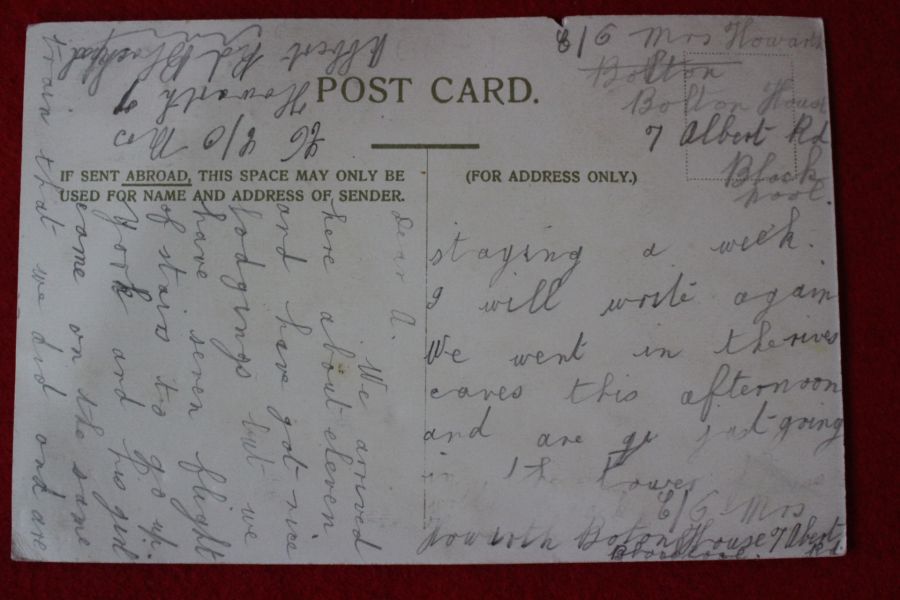 C/O Mrs Howarth
Bolton
Bolton House
7 Albert Rd
Black
pool.
POST CARD.
IF SENT ABROAD, THIS SPACE MAY ONLY BE
USED FOR NAME AND ADDRESS OF SENDER.
(FOR ADDRESS ONLY.)
C/O Mrs
Howarth 7
Albert Rd Blackpool
Dear A. We arrived
here about eleven
and have got nice
lodgings but we
have seven flight
of stairs to go up
York and his girl
came on the same
train that we did and are
staying a week.
I will write again
We went in the
caves this afternoon
and are go just going
in the Tower
C/O Mrs
Howarth Boton House 7 Albert
Blackpool. Rd.